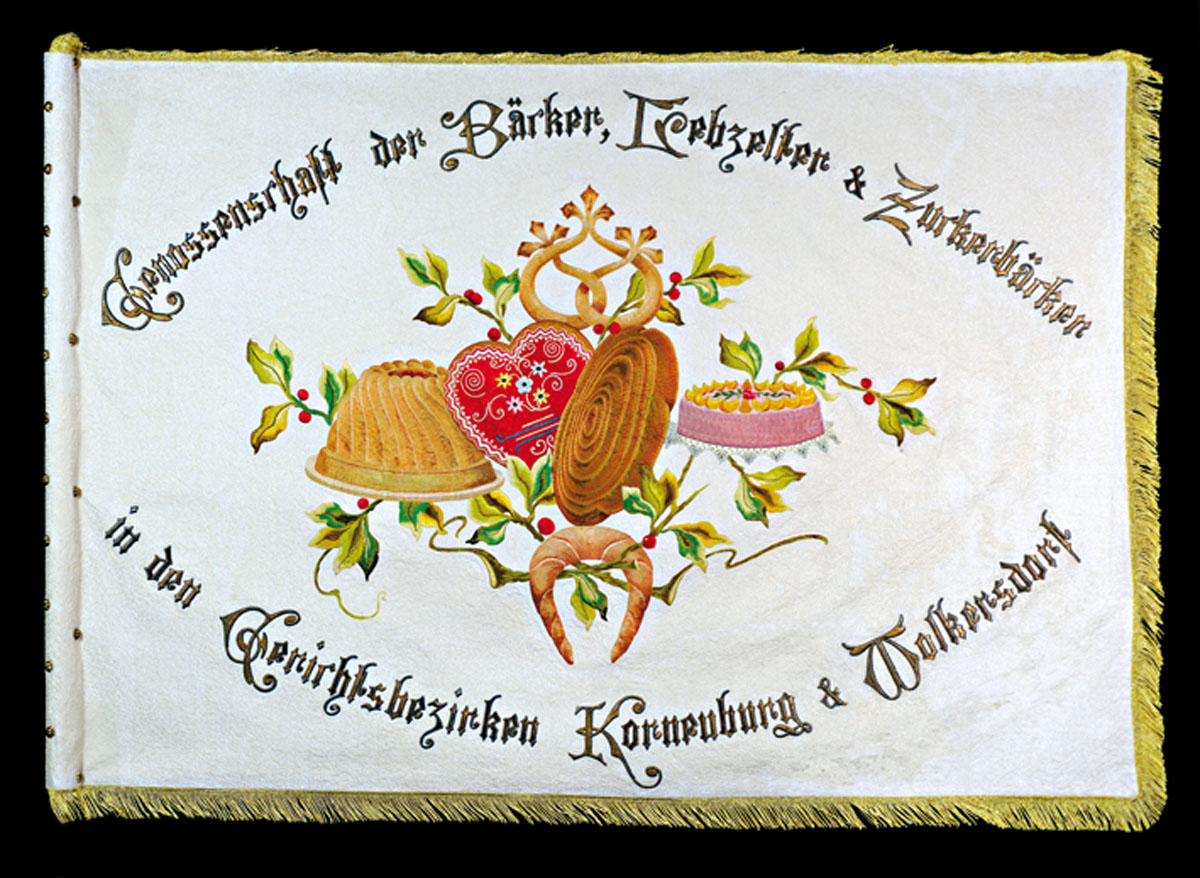 Genossenschaft der Bäcker, Lebzelter & Zuckerbäcker
in den Gerichtsbezirken Korneuburg & Wolkersdorf